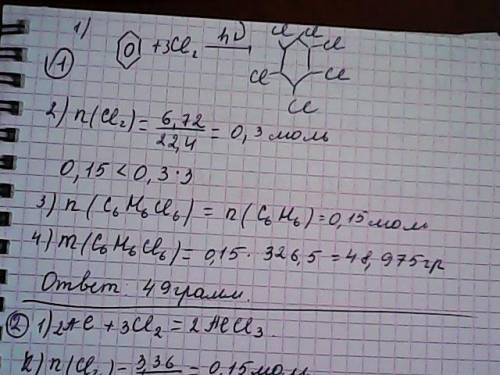 1)
① ⌬ + 3Cl₂ —hν→ Cl Cl Cl Cl Cl Cl
2) n(Cl₂) = 6,72/22,4 = 0,3 моль
0,15 < 0,3·3
3) n(C₆H₆Cl₆) = n(C₆H₆) = 0,15 мол
4) m(C₆H₆Cl₆) = 0,15 · 326,5 = 48,975 гр
Ответ: 49 грамм.
② 1) 2Al + 3Cl₂ = 2AlCl₃.
2) n(Cl₂) = 3,36 = 0,15 моль